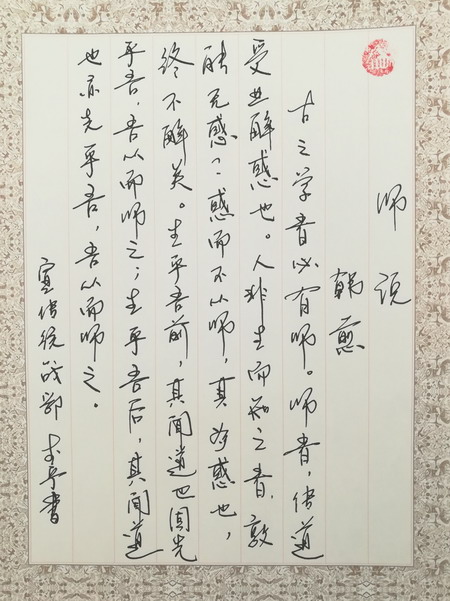 师说
韩愈
古之学者必有师。师者，传道
受业解惑也。人非生而知之者，孰
能无惑？惑而不从师，其为惑也，
终不解矣。生乎吾前，其闻道也固先
乎吾，吾从而师之；生乎吾后，其闻道
也亦先乎吾，吾从而师之。
宣传统战部 书